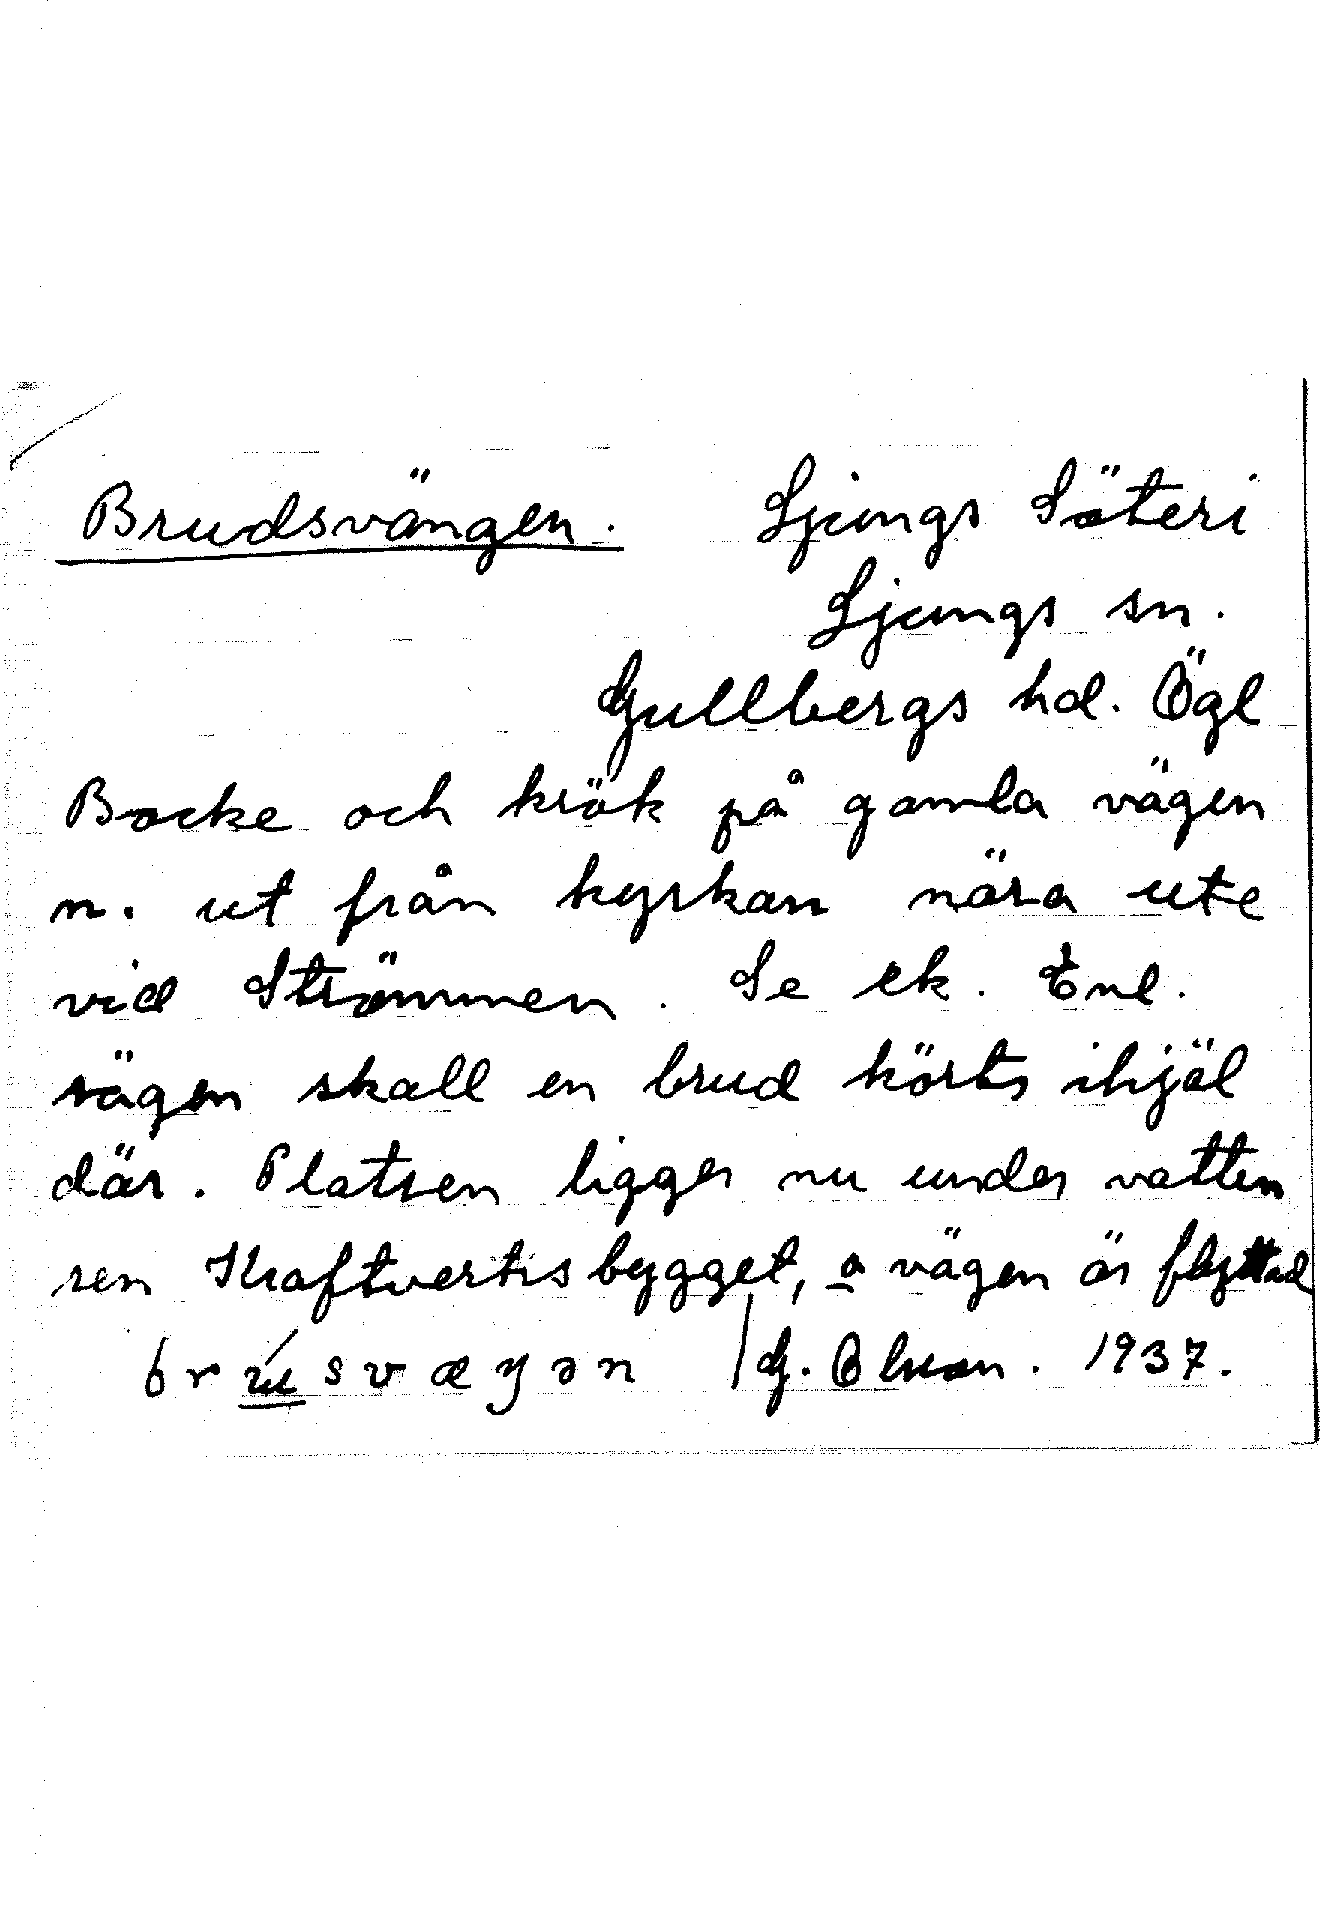 Brudsvängen. Ljungs Säteri
Ljungs sn.
Gullbergs hd. Ögl
Backe och krök på gamla vägen
n. ut från kyrkan nära ute
vid Strömmen. Se ek. Enl.
sägen skall en brud körts ihjäl
där. Platsen ligger nu under vatten
sen Kraftverksbygget, o vägen är flyttad
brúsvæŋən /G. Olson. 1937.